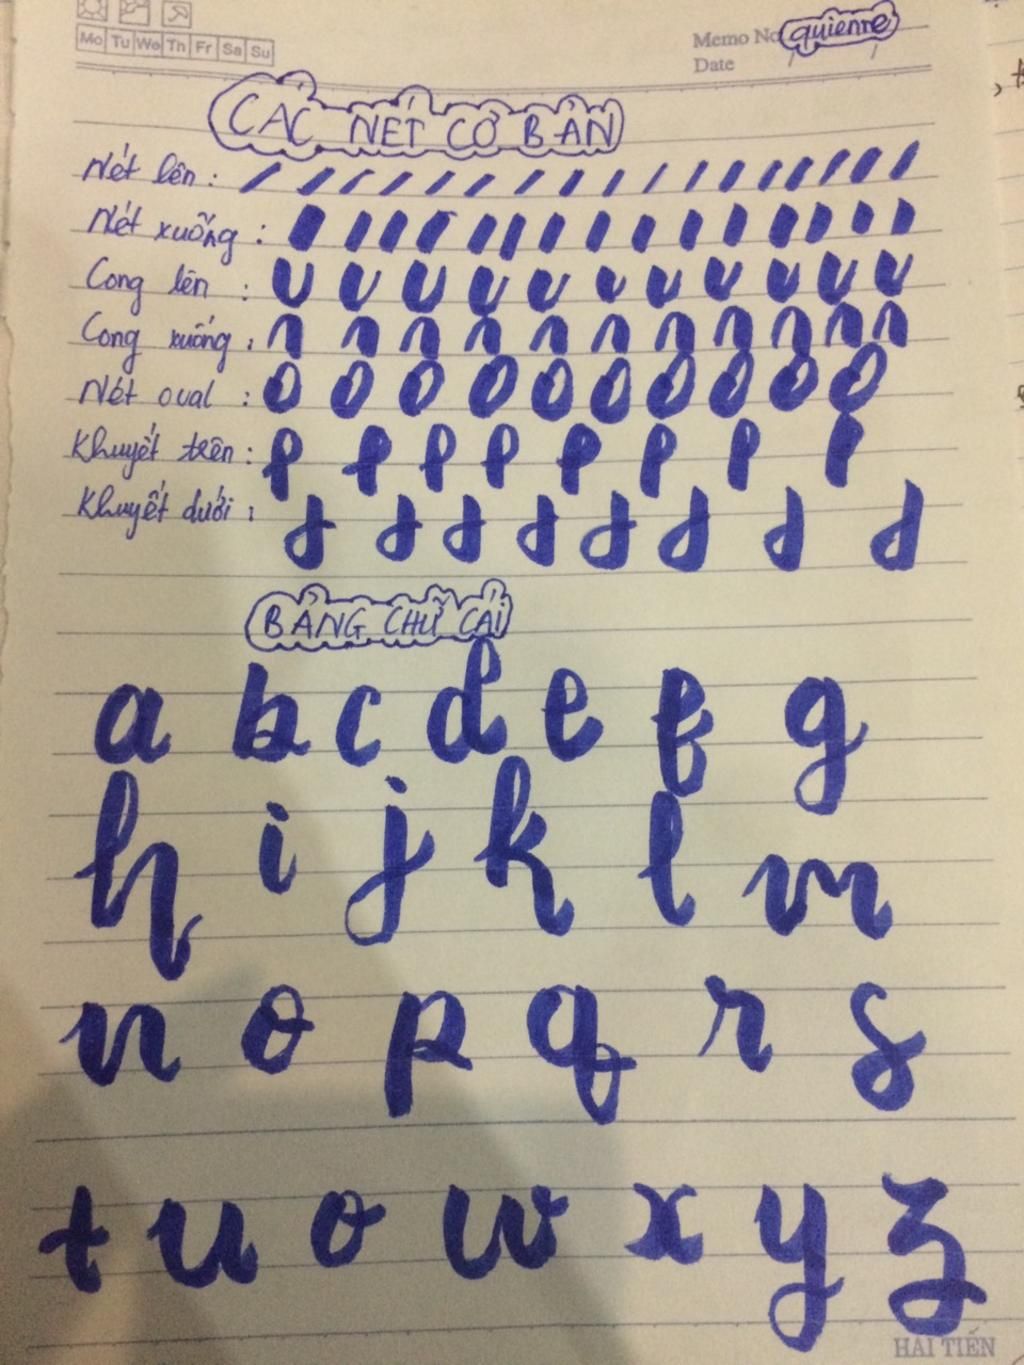 Mo Tu We Th Fr Sa Su
Memo No. quienre
Date / /
CÁC NÉT CƠ BẢN
Nét lên:
Nét xuống:
Cong lên :
Cong xuống:
Nét oval :
Khuyết trên:
Khuyết dưới:
BẢNG CHỮ CÁI
a b c d e f g
h i j k l m
n o p q r s
t u v w x y z
HẢI TIẾN